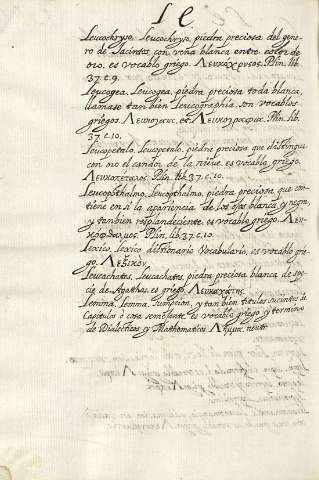 Le.
Leucochryso, Leucochryso, piedra preciosa del gene-
ro de Jacintos, con veña blanca entre color de
oro. es vocablo griego. Λευκόχρυσος. Plin. lib.
37. c. 9.
Leucogea, Leucogea, piedra preciosa toda blanca,
llamase tambien Leucographia, son vocablos
griegos. Plin. lib.
37. c. 10.
Leucopetalo, Leucopetalo, piedra preciosa que distingue
con oro el candor de la nieve. es vocablo griego.
Λευκοπέταλος. Plin. lib. 37. c. 10.
Leucopsthalmo, Leucopthalmo, piedra preciosa que con-
tiene en si la apariencia de los ojos blanca y negra,
y tanbien resplandeciente. es vocablo griego. Λευ-
κόφθαλμος. Plin. lib. 37. c. 10.
Lexico, Lexico dictionario Vocabulario, es vocablo grie-
go. Λεξικόν.
Leucachates, Leucachates, piedra preciosa blanca de spe-
cie de Agathas. es griego. Λευκαχάτης.
Lemma, Lemma. Sumpcion, y tanbien titulos sucintos de
Capitulos ò cosa semejante. es vocablo griego y termino
de Dialecticos y Mathematicos. Λῆμμα. neut.